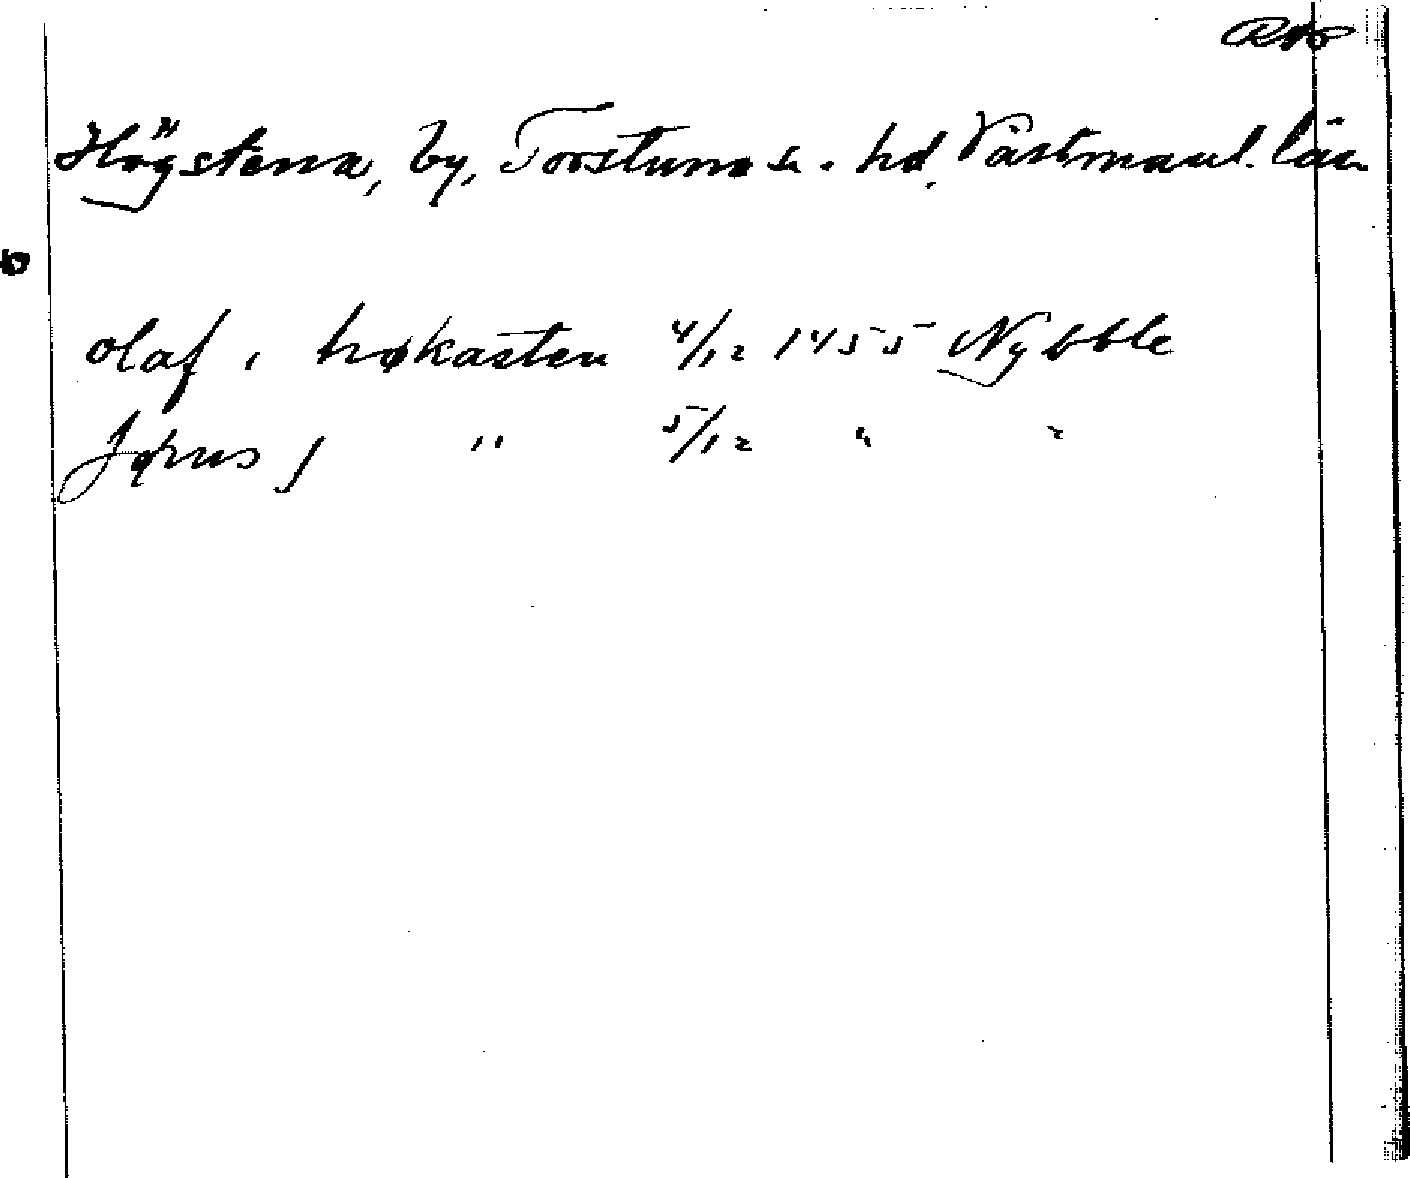 Högstena, by, Torstuna sn. hd. Västmanl. län
olaf i høkasten 4/12 1455 Nybble
Jøpns j " 5/12 " "